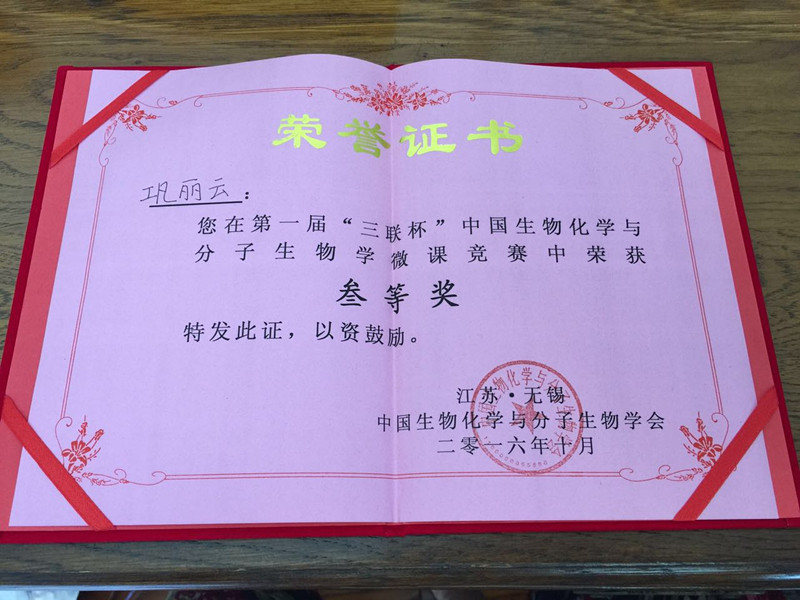 荣誉证书
巩丽云：
您在第一届“三联杯”中国生物化学与
分子生物学微课竞赛中荣获
叁等奖
特发此证，以资鼓励。
江苏·无锡
中国生物化学与分子生物学会
二零一六年十月
中国生物化学与分子生物学会